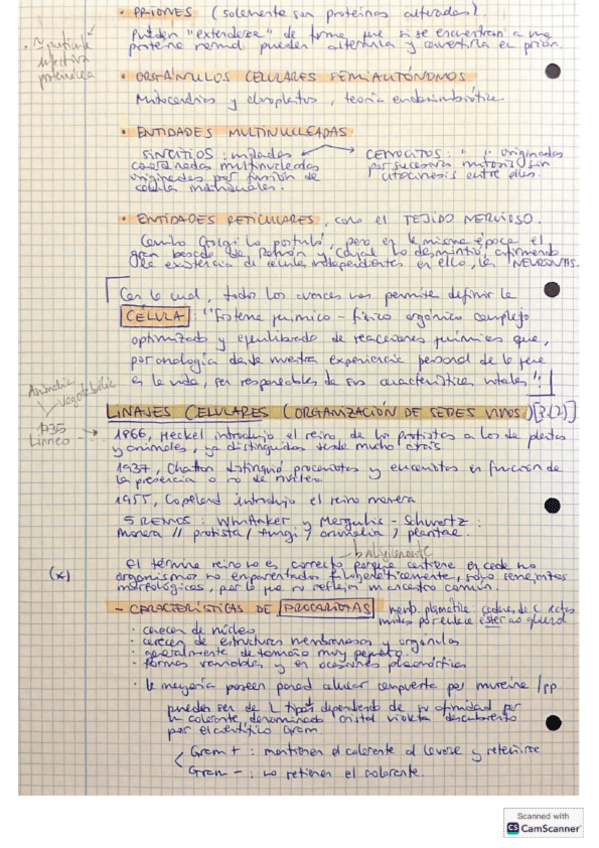 • PRIONES (solamente son proteínas alteradas).
≈ partícula infectiva proteínica
Pueden "extenderse" de forma que si se encuentran a una
proteína normal pueden alterarla y convertirla en prion.
• ORGÁNULOS CELULARES SEMIAUTÓNOMOS
Mitocondrias y cloroplastos, teoría endosimbiótica.
• ENTIDADES MULTINUCLEADAS
SINCITIOS: unidades
coordenadas multinucleadas
originadas por fusión de
células individuales.
CENOCITOS: " " originadas
por sucesivas mitosis sin
citocinesis entre ellas.
• ENTIDADES RETICULARES, como el TEJIDO NERVIOSO.
Camilo Golgi lo postuló, pero en la misma época el
gran Cajal lo desmintió, afirmando
la existencia de células independientes en ello, las NEURONAS.
Con lo cual, todos los avances nos permiten definir la
CÉLULA: "Sistema químico-físico orgánico complejo
optimizado y equilibrado de reacciones químicas que,
por analogía desde nuestra experiencia personal de lo que
es la vida, son responsables de sus características vitales"
Animalia
Vegetabilia
1735
Linneo
LINAJES CELULARES (ORGANIZACIÓN DE SERES VIVOS) [3.(2)]
1866, Heckel introdujo el reino de los protistas a los de plantas
y animales, ya distinguidos desde mucho atrás
1937, Chatton distinguió procariotas y eucariotas en función de
la presencia o no de núcleo.
1955, Copeland introdujo el reino monera
5 REINOS: Whittaker y Margulis - Schwartz:
monera // protista / fungi / animalia / plantae.
(x)
El término reino no es correcto porque contiene en cada uno
organismos no emparentados filogenéticamente, solo semejantes
morfológicamente, por lo que no refleja un ancestro común.
- CARACTERÍSTICAS DE PROCARIOTAS
memb. plasmática: cadenas de C rectas
unidas por enlace éster no glicerol
• carecen de núcleo
• carecen de estructuras membranosas y orgánulos
• generalmente de tamaño muy pequeño
• formas variables y en ocasiones pleomórficas
• la mayoría poseen pared celular compuesta por mureína / pp.
pueden ser de 2 tipos dependiendo de su afinidad por
un colorante denominado cristal violeta descubierto
por el científico Gram.
Gram +: mantienen el colorante al lavarse y retenirse
Gram -: no retienen el colorante.
Scanned with
CS CamScanner